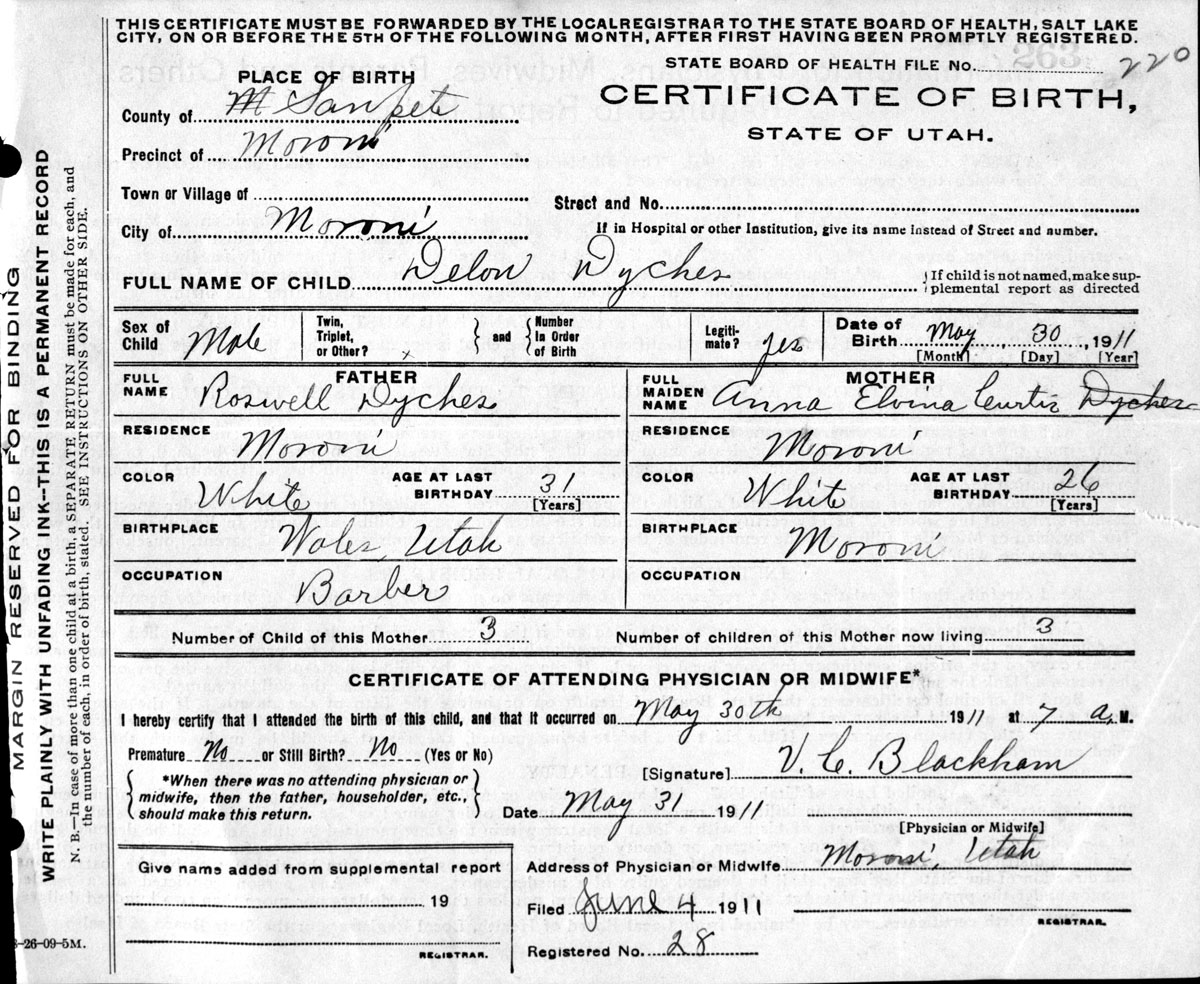 THIS CERTIFICATE MUST BE FORWARDED BY THE LOCAL REGISTRAR TO THE STATE BOARD OF HEALTH, SALT LAKE
CITY, ON OR BEFORE THE 5TH OF THE FOLLOWING MONTH, AFTER FIRST HAVING BEEN PROMPTLY REGISTERED.
STATE BOARD OF HEALTH FILE No. 220
PLACE OF BIRTH
CERTIFICATE OF BIRTH,
STATE OF UTAH.
County of Sanpete
Precinct of Moroni
Town or Village of
Street and No.
City of Moroni
If in Hospital or other Institution, give its name instead of Street and number.
FULL NAME OF CHILD Delon Dyches
If child is not named, make sup-
plemental report as directed
Sex of Child Male
Twin, Triplet, or Other?
and
Number In Order of Birth
Legiti-mate? yes
Date of Birth May 30, 1911
[Month] [Day] [Year]
FATHER
FULL NAME Roswell Dyches
RESIDENCE Moroni
COLOR White
AGE AT LAST BIRTHDAY 31
[Years]
BIRTHPLACE Wales, Utah
OCCUPATION Barber
MOTHER
FULL MAIDEN NAME Anna Elvina Curtis Dyches
RESIDENCE Moroni
COLOR White
AGE AT LAST BIRTHDAY 26
[Years]
BIRTHPLACE Moroni
OCCUPATION
Number of Child of this Mother 3
Number of children of this Mother now living 3
CERTIFICATE OF ATTENDING PHYSICIAN OR MIDWIFE*
I hereby certify that I attended the birth of this child, and that it occurred on May 30th 1911 at 7 a. M.
Premature No or Still Birth? No (Yes or No)
*When there was no attending physician or
midwife, then the father, householder, etc.,
should make this return.
[Signature] V. C. Blackham
Date May 31 1911
[Physician or Midwife]
Give name added from supplemental report
19
REGISTRAR.
Address of Physician or Midwife Moroni, Utah
Filed June 4 1911
REGISTRAR.
Registered No. 28
MARGIN RESERVED FOR BINDING
WRITE PLAINLY WITH UNFADING INK--THIS IS A PERMANENT RECORD
N. B.—In case of more than one child at a birth, a SEPARATE RETURN must be made for each, and
the number of each, in order of birth, stated. SEE INSTRUCTIONS ON OTHER SIDE.
-26-09-5M.